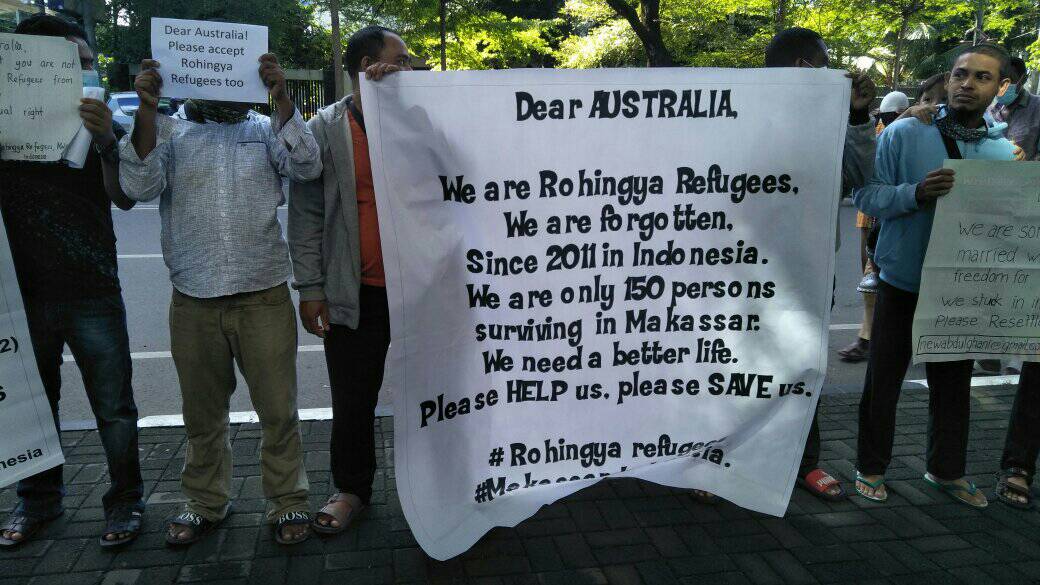 ralia,
t you are not
Refugees from
ual right
ohingya Refugees, 
Indonesia
Dear Australia!
Please accept
Rohingya
Refugees too
2)
s
nesia
Dear AUSTRALIA,
We are Rohingya Refugees,
We are forgotten,
Since 2011 in Indonesia.
We are only 150 persons
surviving in Makassar.
We need a better life.
Please HELP us, please SAVE us.
# Rohingya refugeia.
#Makassar
We are so
married w
freedom for
We stuck in i
Please Resettl
newabdulghani@gmail.co
BOSS
BOSS